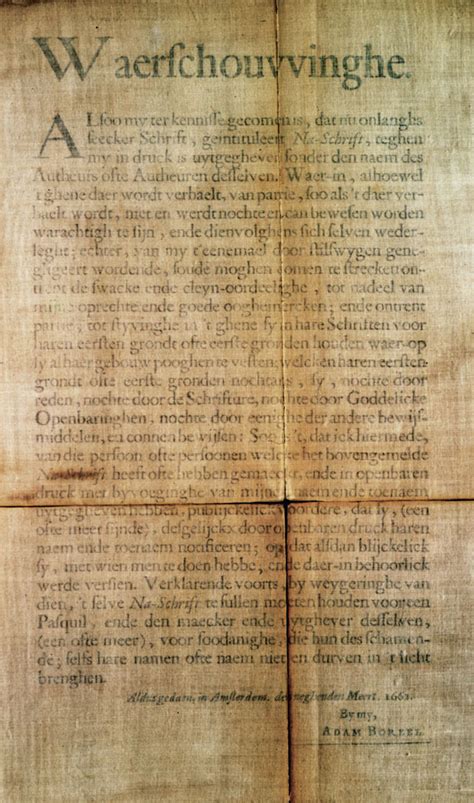 Waerſchouvvinghe.
ALſoo my ter kenniſſe gecomen is, dat nu onlanghs
ſeecker Schrift, geintituleert Na-Schrift, teghen
my in druck is uytgeghevey ſonder den naem des
Autheurs ofte Autheuren deſſelven. Waer-in, alhoewel
't ghene daer wordt verhaelt, van partie, ſoo als 't daer ver-
haelt wordt, niet en werdt nochte en can bewesen worden
warachtigh te ſijn, ende dienvolghens ſich ſelven weder-
leght; echter, van my t'eenemael door ſtilſwygen gene-
gligeert wordende, ſoude moghen comen te ſtrecken on-
trent de ſwacke ende cleyn-oordeelighe, tot nadeel van
mijne oprechte ende goede ooghemercken; ende ontrent
partie, tot ſtyvinghe in 't ghene ſy in hare Schriften voor
haren eerſten grondt ofte eerſte gronden houden waer-op
ſy al haer gebouw pooghen te veſten, welcken haren eerſten
grondt ofte eerſte gronden nochtans, ſy, nochte door
reden, nochte door de Schrifture, nochte door Goddelicke
Openbaringhen, nochte door eenighe der andere bewijſ-
middelen, en connen bewijſen: Soo is't, dat ick hier mede,
van die perſoon ofte perſoonen welcke het bovengemelde
Na-Schrift heeft ofte hebben gemaeckt, ende in openbaren
druck met byvoeginghe van mijnen naem ende toenaem
uytgegheven hebben, publijckelick voordere, dat ſy, (een
ofte meer ſijnde), deſgelijckx door openbaren druck haren
naem ende toenaem notificeren; op dat alſdan blijckelick
ſy, met wien men te doen hebbe, ende daer-in behoorlick
werde verſien. Verklarende voorts, by weygeringhe van
dien, 't ſelve Na-Schrift te ſullen moeten houden voor een
Paſquil, ende den maecker ende uytghever deſſelven,
(een ofte meer), voor ſoodanighe, die hun des ſchamen-
de; ſelfs hare namen ofte naem niet en durven in 't licht
brenghen.
Aldus gedaen, in Amſterdam, den neghenden Meert. 1662.
By my,
ADAM BOREEL.